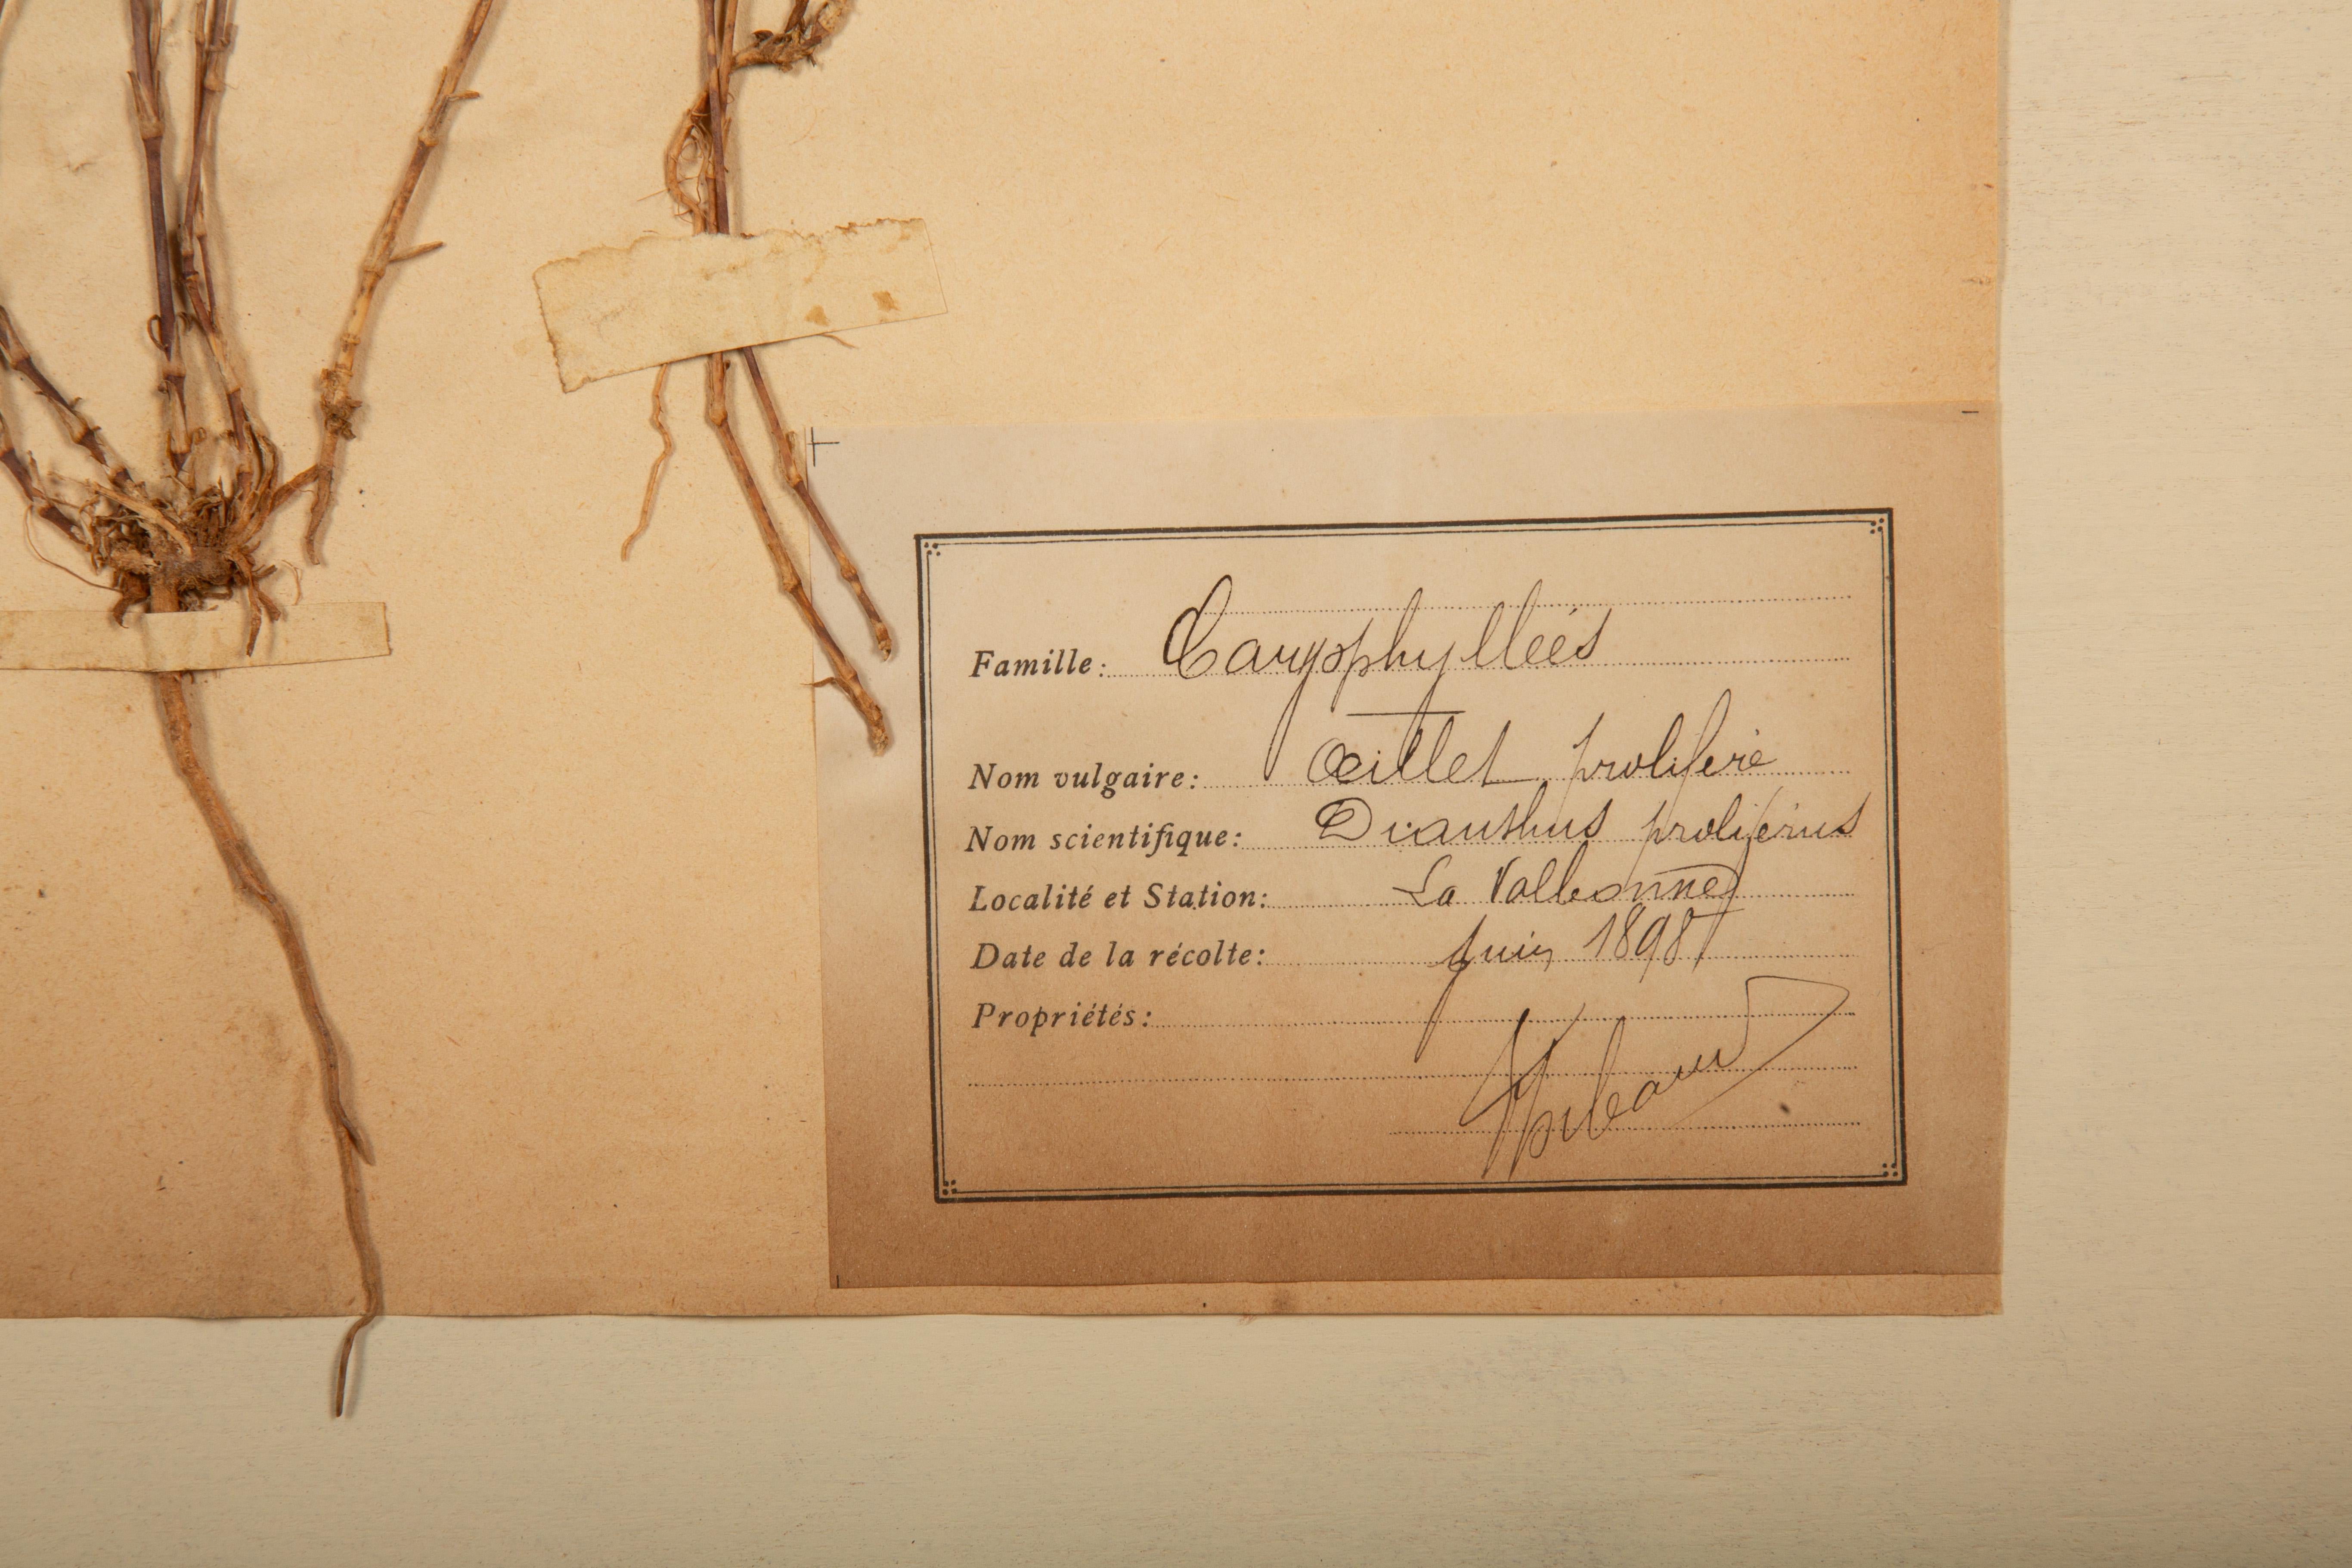 Famille: Caryophylleés
Nom vulgaire: Œillet prolifère
Nom scientifique: Dianthus prolifèrus
Localité et Station: La Valbonne
Date de la récolte: Juin 1898
Propriétés: